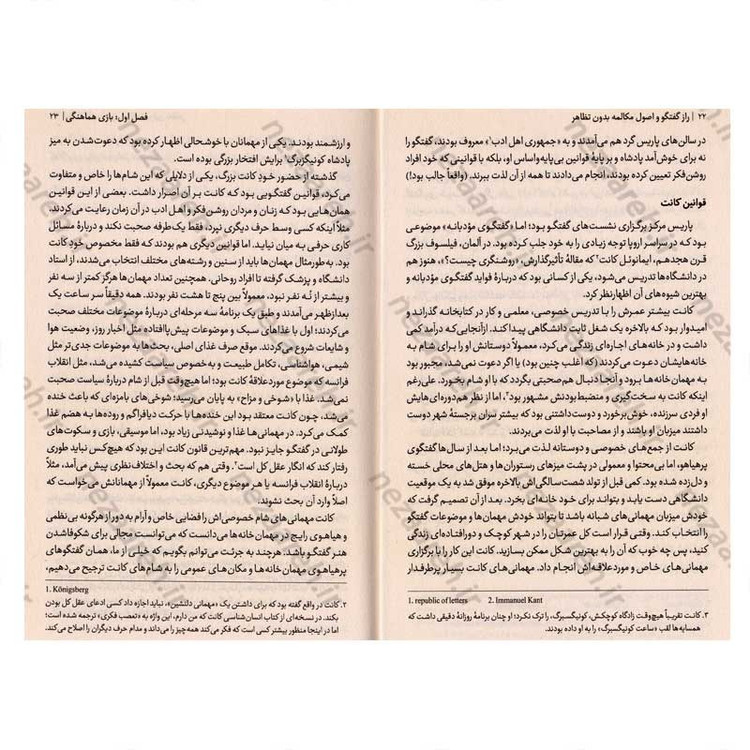 ۲۲ | راز گفتگو و اصول مکالمه بدون تظاهر
در سالن‌های پاریس گرد هم می‌آمدند و به «جمهوری اهل ادب¹» معروف بودند، گفتگو را
نه برای خوش‌آمد پادشاه و بر پایهٔ قوانین بی‌پایه‌واساس او، بلکه با قوانینی که خود افراد
روشن‌فکر تعیین کرده بودند، انجام می‌دادند تا همه از آن لذت ببرند. (واقعاً جالب بود!)
قوانین کانت
پاریس مرکز برگزاری نشست‌های گفتگو بود؛ اما «گفتگوی مؤدبانه» موضوعی
بود که در سراسر اروپا توجه زیادی را به خود جلب کرده بود. در آلمان، فیلسوف بزرگ
قرن هجدهم، ایمانوئل کانت² که مقالهٔ تأثیرگذارش، «روشنگری چیست؟»، هنوز هم
در دانشگاه‌ها تدریس می‌شود، یکی از کسانی بود که دربارهٔ فواید گفتگوی مؤدبانه و
بهترین شیوه‌های آن اظهارنظر کرد.
کانت بیشتر عمرش را با تدریس خصوصی، معلمی و کار در کتابخانه گذراند و
امیدوار بود که بالاخره یک شغل ثابت دانشگاهی پیدا کند. ازآنجایی‌که درآمد کمی
داشت و در خانه‌های اجاره‌ای زندگی می‌کرد، معمولاً دوستانش او را برای شام به
خانه‌هایشان دعوت می‌کردند (که اغلب چنین بود) یا اگر دعوت نمی‌شد، مجبور بود
به مهمان خانه‌ها برود و آنجا دنبال هم‌صحبتی بگردد که با او شام بخورد. علی‌رغم
اینکه کانت به سخت‌گیری و منضبط‌بودنش مشهور بود³، از نظر هم‌دوره‌ای‌هایش
او فردی سرزنده، خوش‌برخورد و دوست‌داشتنی بود که بیشتر سران برجستهٔ شهر دوست
داشتند میزبان او باشند و از مصاحبت با او لذت می‌برد.
کانت از جمع‌های خصوصی و دوستانه لذت می‌برد؛ اما بعد از سال‌ها گفتگوی
پرهیاهو، اما بی‌محتوا و معمولی در پشت میزهای رستوران‌ها و هتل‌های محلی خسته
و دل‌زده شده بود. کمی قبل از تولد شصت‌سالگی‌اش بالاخره موفق شد به یک موقعیت
دانشگاهی دست یابد و بتواند برای خود خانه‌ای بخرد. بعد از آن تصمیم گرفت که
خودش میزبان مهمانی های شبانه باشد تا بتواند خودش مهمان‌ها و موضوعات گفتگو
را انتخاب کند. وقتی قرار است کل عمرتان را در شهر کوچک و دورافتاده‌ای زندگی
کنید، پس چه خوب که آن را به بهترین شکل ممکن بسازید. کانت این کار را با برگزاری
مهمانی‌های خاص و موردعلاقه‌اش انجام داد. مهمانی‌های کانت بسیار پرطرفدار
1. republic of letters 2. Immanuel Kant
۳. کانت تقریباً هیچ‌وقت زادگاه کوچکش، کونیگسبرگ، را ترک نکرد؛ او چنان برنامهٔ روزانهٔ دقیقی داشت که
همسایه‌ها لقب «ساعت کونیگسبرگ» را به او داده بودند.
فصل اول: بازی هماهنگی | ۲۳
و ارزشمند بودند. یکی از مهمانان با خوشحالی اظهار کرده بود که دعوت‌شدن به میز
پادشاه کونیگزبرگ¹ برایش افتخار بزرگی بوده است.
گذشته از حضور خودِ کانت بزرگ، یکی از دلایلی که این شام‌ها را خاص و متفاوت
می‌کرد، قوانین گفتگویی بود که کانت بر آن اصرار داشت. بعضی از این قوانین
همان‌هایی بود که زنان و مردان روشن‌فکر و اهل ادب در آن زمان رعایت می‌کردند،
مثلاً اینکه کسی وسط حرف دیگری نپرد، فقط یک‌طرفه صحبت نکند و دربارهٔ مسائل
کاری حرفی به میان نیاید. اما قوانین دیگری هم بودند که فقط مخصوص خودِ کانت
بود. به‌طورمثال مهمان‌ها باید از سنین و رشته‌های مختلف انتخاب می‌شدند، از استاد
دانشگاه و پزشک گرفته تا افراد روحانی. همچنین تعداد مهمان‌ها هرگز کمتر از سه نفر
و بیشتر از نُه نفر نبود، معمولاً بین پنج تا هشت نفر بودند. همه دقیقاً سر ساعت یک
بعدازظهر می‌آمدند و طبق یک برنامهٔ سه مرحله‌ای دربارهٔ موضوعات مختلف صحبت
می‌کردند؛ اول با غذاهای سبک و موضوعات پیش‌پاافتاده مثل اخبار روز، وضعیت هوا
و شایعات شروع می‌کردند. موقع صرف غذای اصلی، بحث‌ها به موضوعات جدی‌تر مثل
شیمی، هواشناسی، تکامل طبیعت و به‌خصوص سیاست کشیده می‌شد، مثل انقلاب
فرانسه که موضوع موردعلاقهٔ کانت بود؛ اما هیچ‌وقت قبل از شام دربارهٔ سیاست بحث
نمی‌شد. غذا با «شوخی و مزاح» به پایان می‌رسید؛ شوخی‌های بامزه‌ای که باعث خنده
می‌شد، چون کانت معتقد بود این خنده‌ها با حرکت دیافراگم و روده‌ها به هضم غذا
کمک می‌کرد. در مهمانی‌ها غذا و نوشیدنی زیاد بود، اما موسیقی، بازی و سکوت‌های
طولانی در گفتگو جایز نبود. مهم‌ترین قانون کانت این بود که هیچ‌کس نباید طوری
رفتار کند که انگار عقل کل است². وقتی هم که بحث و اختلاف‌نظری پیش می‌آمد، مثلاً
دربارهٔ انقلاب فرانسه یا هر موضوع دیگری، کانت معمولاً از مهمانانش می‌خواست که
اصلاً وارد آن بحث نشوند.
کانت مهمانی‌های شام خصوصی‌اش را فضایی خاص و آرام به دور از هرگونه بی‌نظمی
و هیاهوی رایج در مهمان خانه‌ها می‌دانست که می‌توانست مجالی برای شکوفاشدن
هنر گفتگو باشد. هرچند به جرئت می‌توانم بگویم که خیلی از ما، همان گفتگوهای
پرهیاهوی مهمان خانه‌ها و مکان‌های عمومی را به شام‌های کانت ترجیح می‌دهیم،
1. Königsberg
۲. کانت در واقع گفته بود که برای داشتن یک «مهمانی دلنشین»، نباید اجازه داد کسی ادعای عقل کل بودن
بکند. در نسخه‌ای از کتاب انسان‌شناسی کانت که من دارم، این واژه به «تعصب فکری» ترجمه شده است؛
اما در اینجا منظور بیشتر کسی است که فکر می‌کند همه‌چیز را می‌داند و مدام حرف دیگران را اصلاح می‌کند.